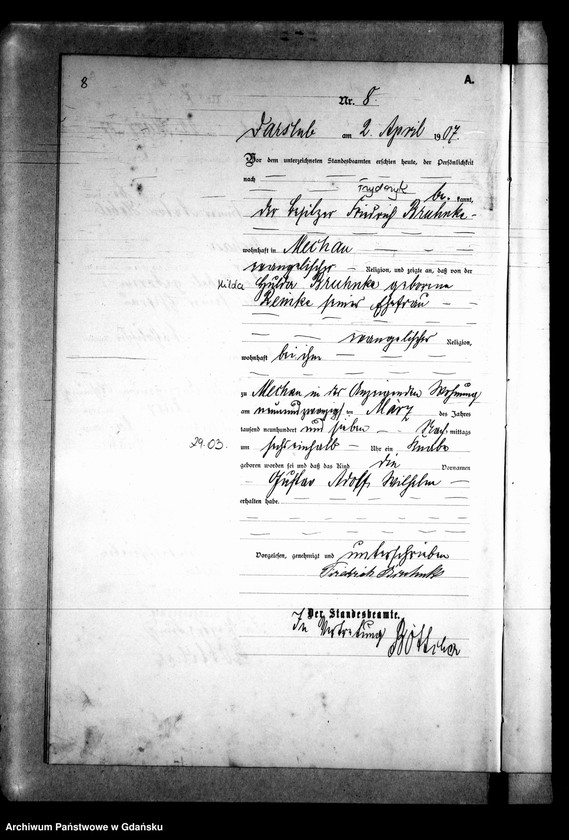 8
A.
Nr. 8.
Darslub am 2. April 1907.
Vor dem unterzeichneten Standesbeamten erschien heute, der Persönlichkeit
nach
Fryderyk
be- kannt,
der Besitzer Friedrich Bruhnke
wohnhaft in Mechau
evangelischer Religion, und zeigte an, daß von der
Hilda Hulda Bruhnke geborene
Reinke seiner Ehefrau
evangelischer Religion,
wohnhaft bei ihm
zu Mechau in der Anzeigenden Wohnung
am neunundzwanzigsten März des Jahres
tausend neunhundert und sieben Nach- mittags
29.03.
um sechseinhalb Uhr ein Knabe
geboren worden sei und daß das Kind die Vornamen
Gustav Adolf Wilhelm
erhalten habe.
Vorgelesen, genehmigt und unterschrieben
Friedrich Bruhnke
Der Standesbeamte.
In Vertretung Böttcher
Archiwum Państwowe w Gdańsku